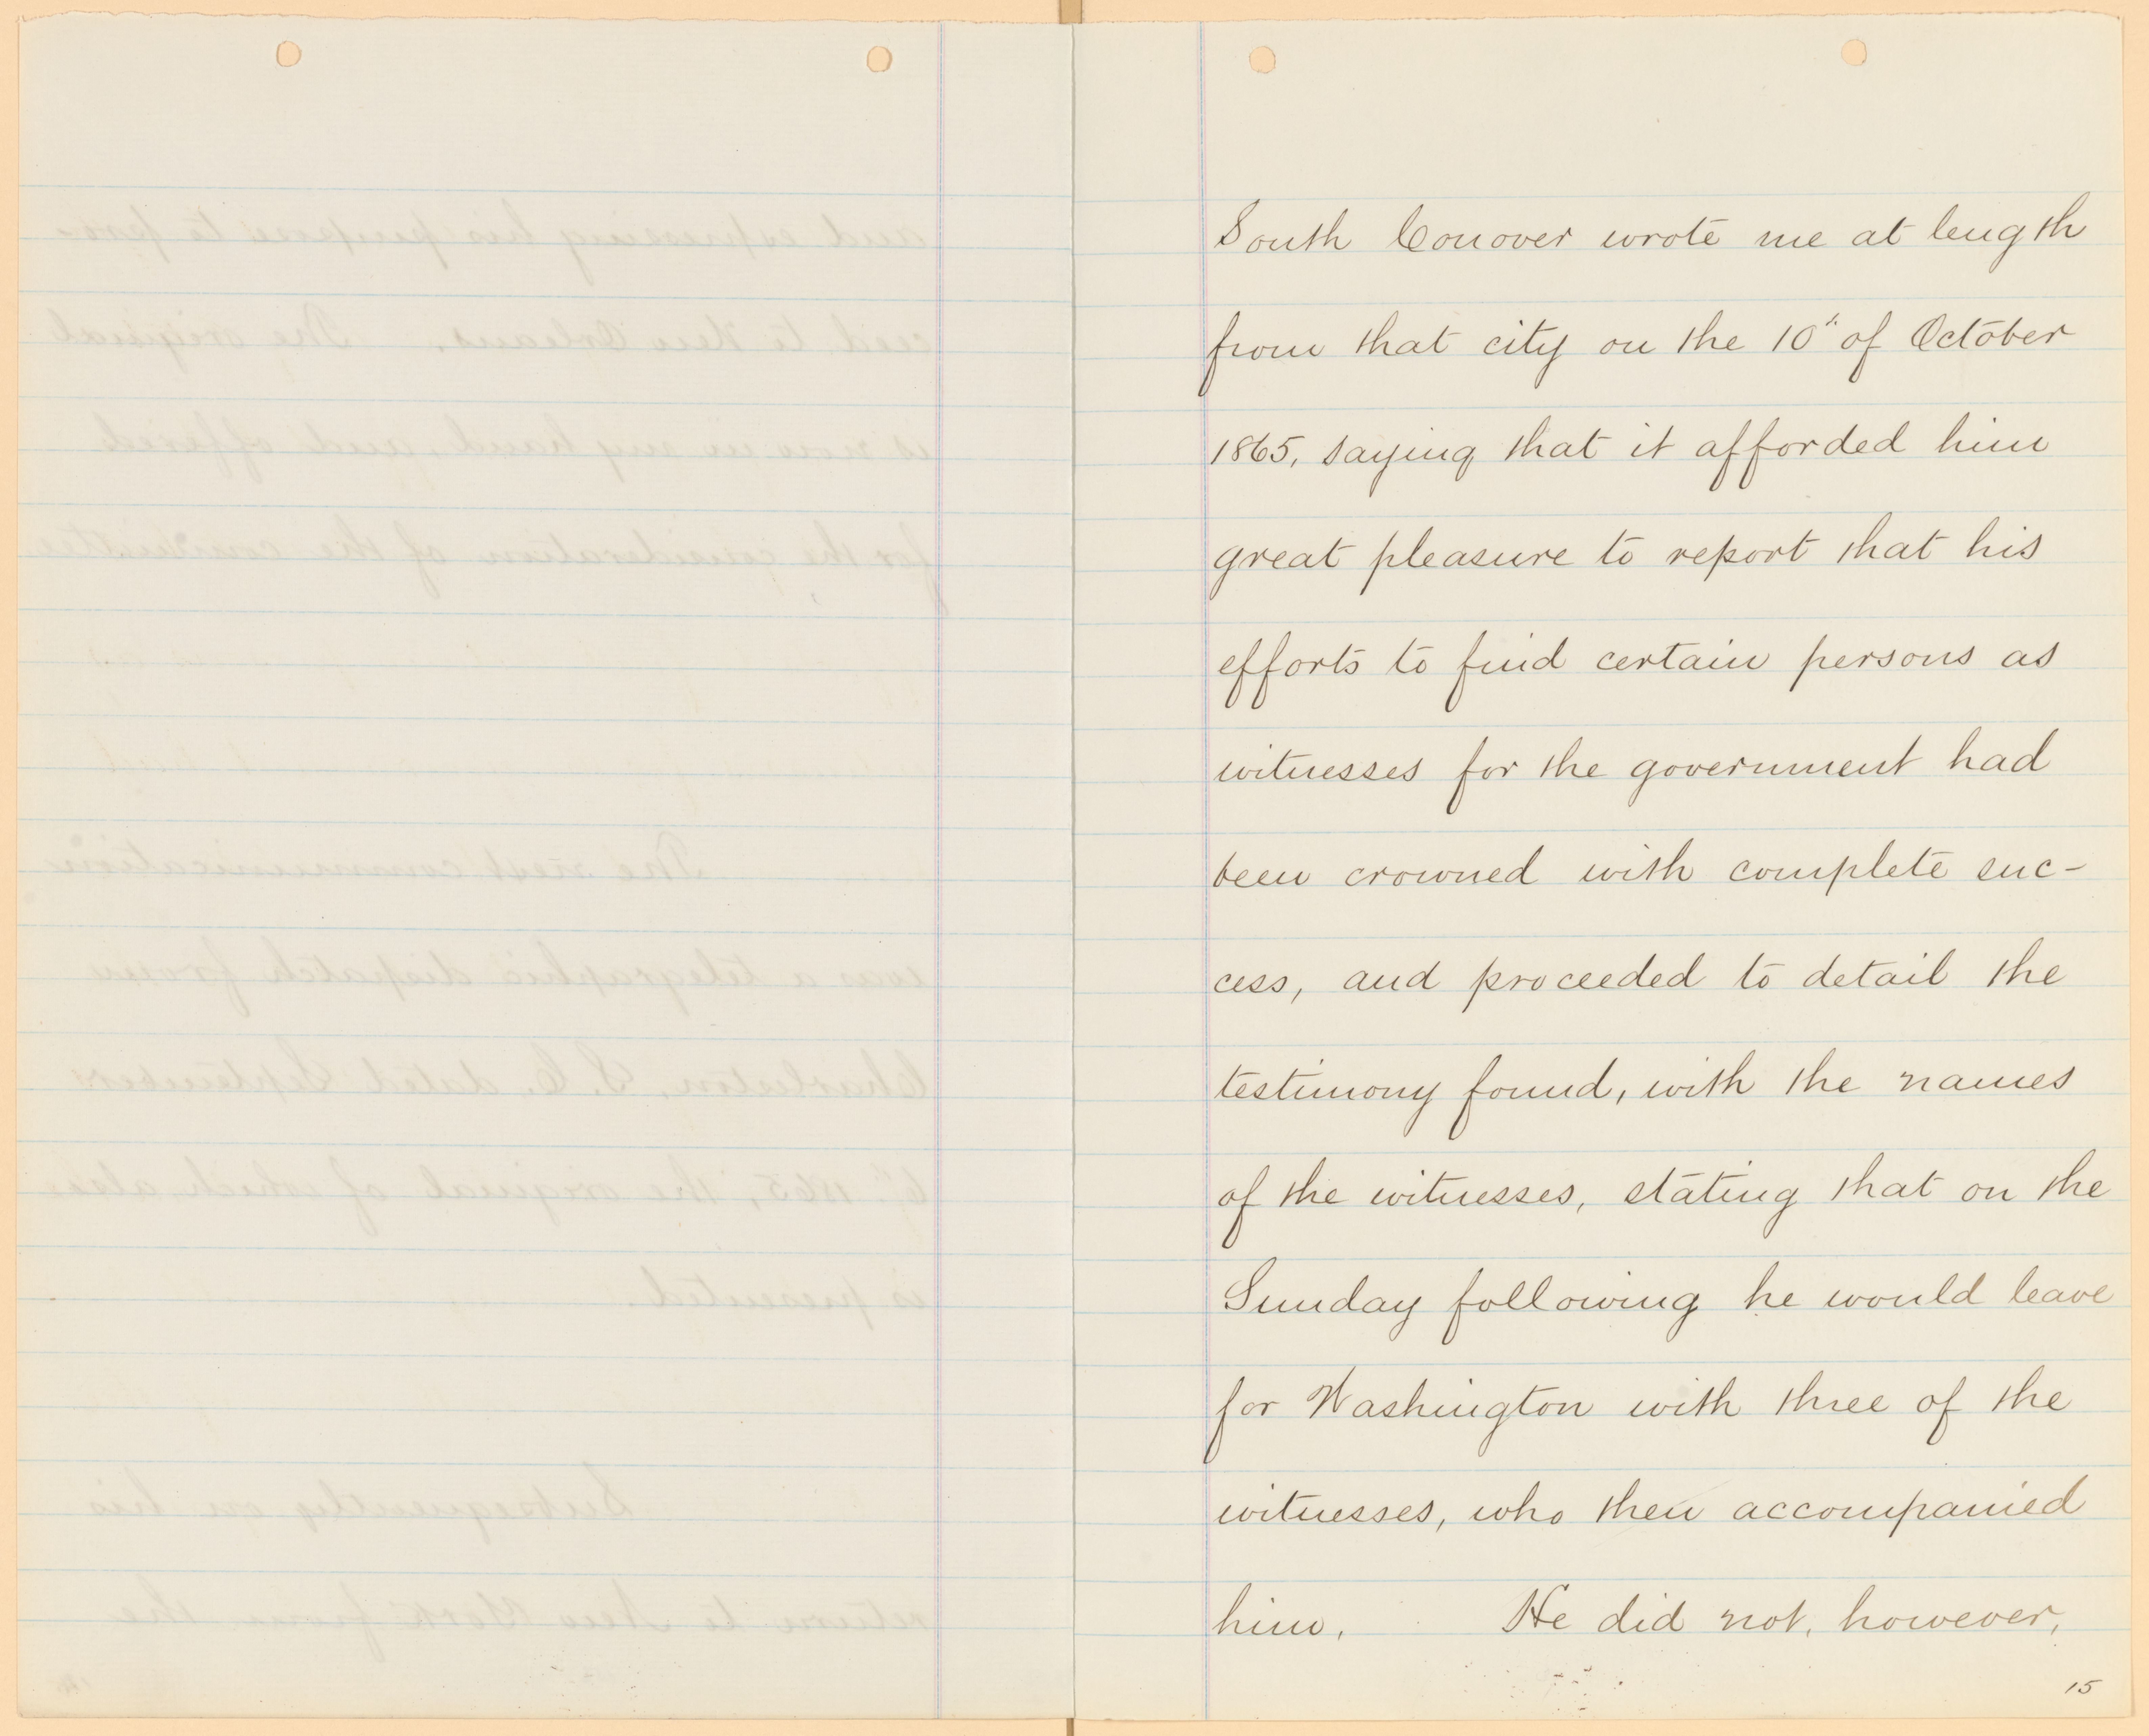 South Conover wrote me at length
from that city on the 10" of October
1865, saying that it afforded him
great pleasure to report that his
efforts to find certain persons as
witnesses for the government had
been crowned with complete suc-
cess, and proceeded to detail the
testimony found, with the names
of the witnesses, stating that on the
Sunday following he would leave
for Washington with three of the
witnesses, who then accompanied
him. He did not, however,
15